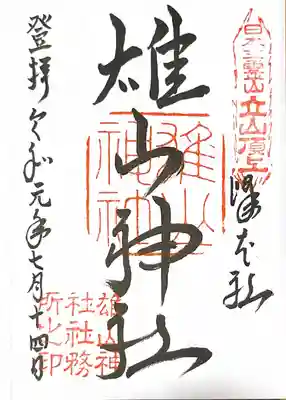 日本靈山立山頂上
峰本社
雄山神社
雄山
神社
登拝 令和元年七月十四日
雄山神
社社務
所之印